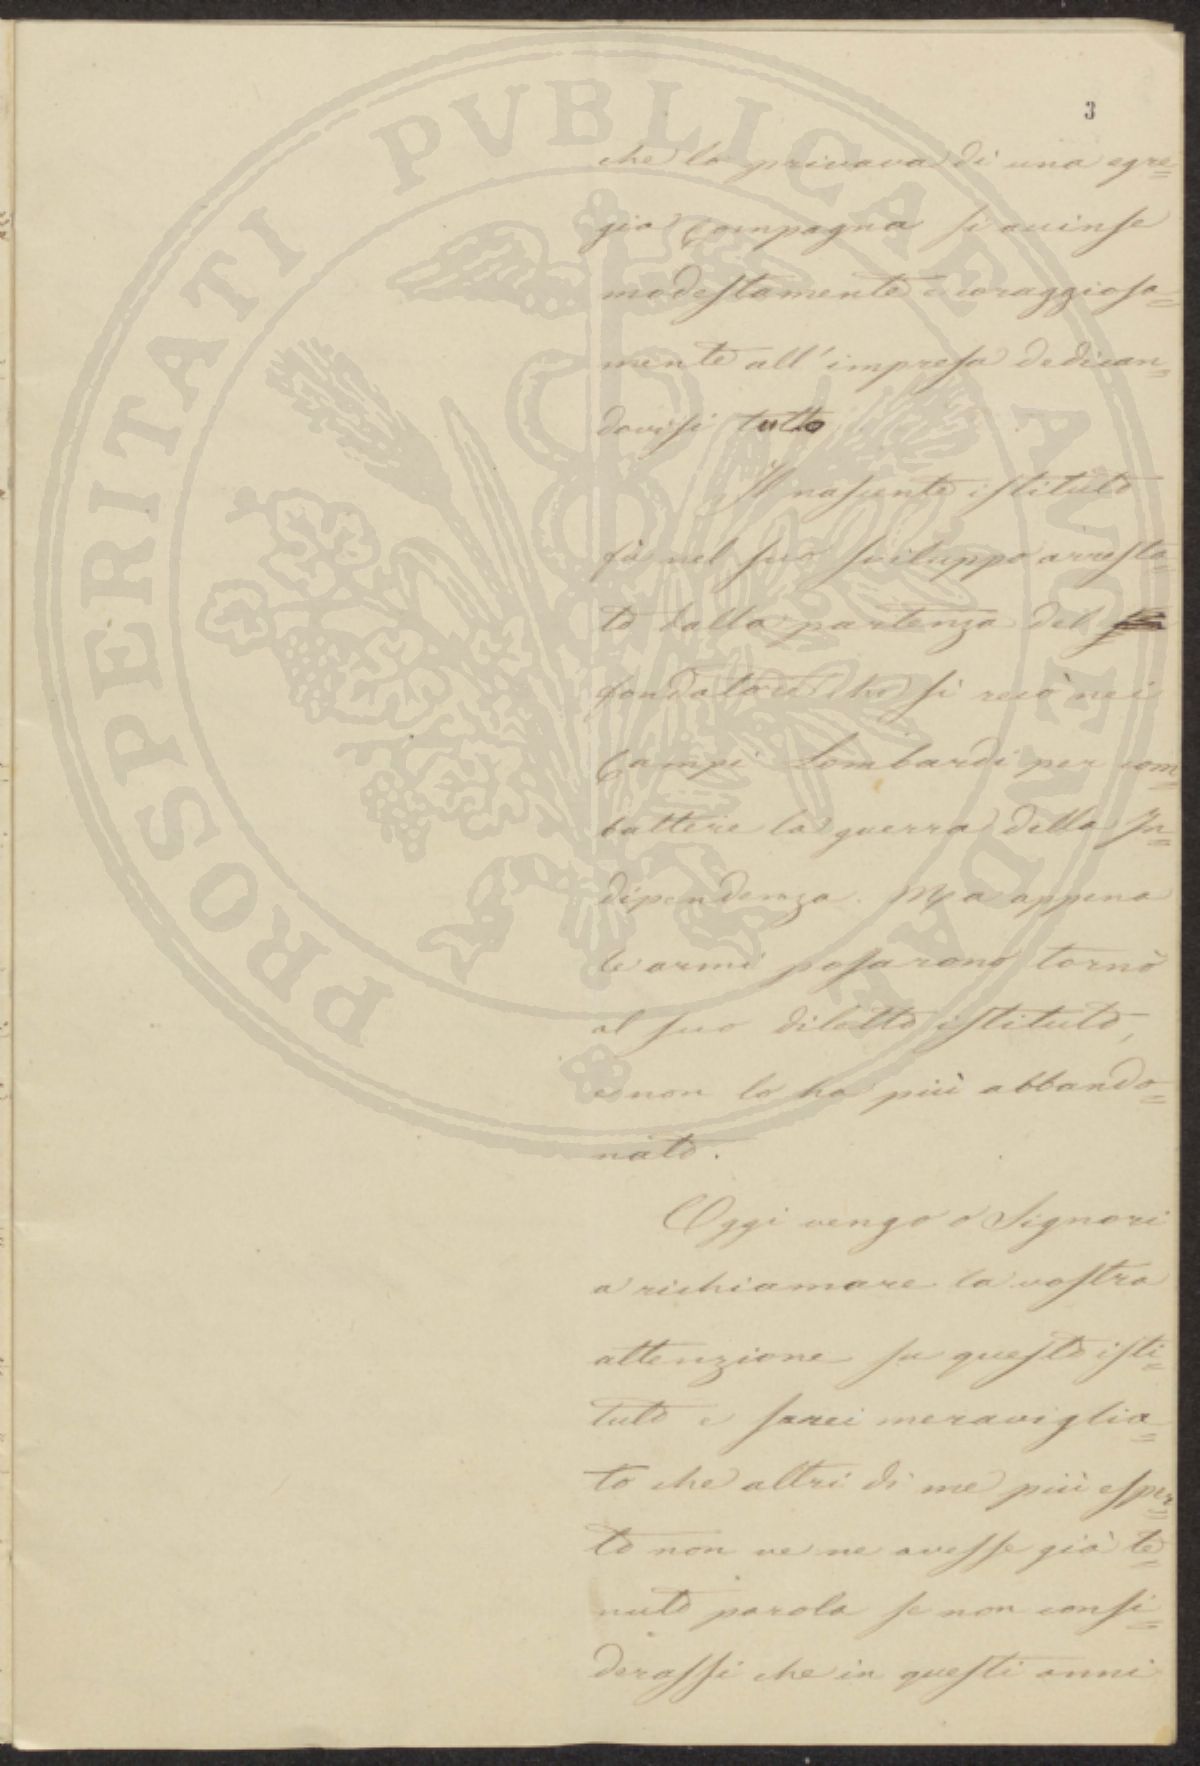 PROSPERITATI PVBLICAE AVGENDAE
3
che lo privava di una egre=
gia Compagna si avinse
modestamente e coraggiosa=
mente all' impresa dedican=
dovisi tutto
Il nascente istituto
fù nel suo sviluppo arresta=
to dalla partenza del
fondatore che si recò nei
Campi Lombardi per com=
battere la guerra della In=
dipendenza. Ma appena
le armi posarono tornò
al suo diletto istituto,
e non lo ha più abbando=
nato.
Oggi vengo o Signori
a richiamare la vostra
attenzione su questo isti=
tuto e sarei meraviglia=
to che altri di me più esper=
to non ve ne avesse già te=
nuto parola se non consi=
derassi che in questi anni